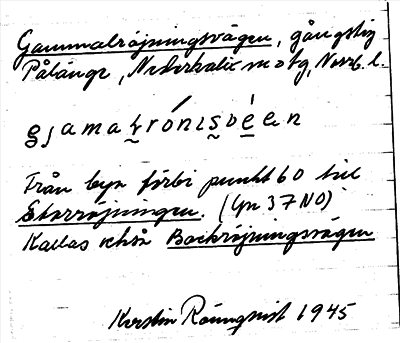 Gammalröjningsvägen, gångstig
Pålänge, Nederkalix m otg, Norrb. l.
Från byn förbi punkt 60 till
Storröjningen. (Gn 37 NO)
Kallas också Backröjningsvägen
Kerstin Rönnqvist 1945